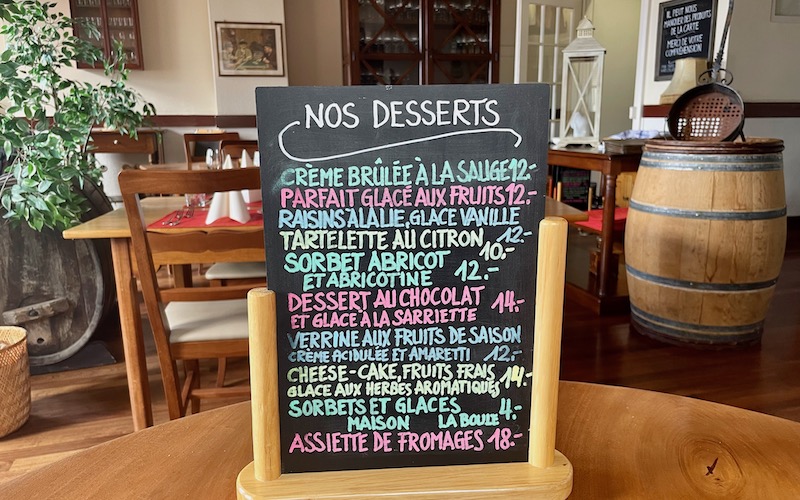 NOS DESSERTS
CRÈME BRÛLÉE À LA SAUGE 12.-
PARFAIT GLACÉ AUX FRUITS 12.-
RAISINS À LA LIE, GLACE VANILLE
12.-
TARTELETTE AU CITRON 10.-
SORBET ABRICOT
ET ABRICOTINE 12.-
DESSERT AU CHOCOLAT 14.-
ET GLACE À LA SARRIETTE
VERRINE AUX FRUITS DE SAISON
CRÈME ACIDULÉE ET AMARETTI 12.-
CHEESE-CAKE, FRUITS FRAIS 14.-
GLACE AUX HERBES AROMATIQUES
SORBETS ET GLACES 4.-
MAISON LA BOULE
ASSIETTE DE FROMAGES 18.-
IL PEUT NOUS
MANQUER DES PRODUITS
DE LA CARTE
MERCI DE VOTRE
COMPRÉHENSION